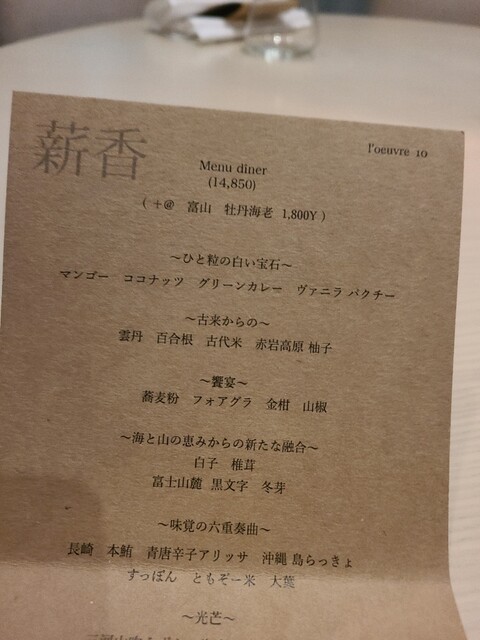 薪香
l'oeuvre 10
Menu dîner
(14,850)
( +@ 富山 牡丹海老 1,800Y )
~ひと粒の白い宝石~
マンゴー ココナッツ グリーンカレー ヴァニラ パクチー
~古来からの~
雲丹 百合根 古代米 赤岩高原 柚子
~饗宴~
蕎麦粉 フォアグラ 金柑 山椒
~海と山の恵みからの新たな融合~
白子 椎茸
富士山麓 黒文字 冬芽
~味覚の六重奏曲~
長崎 本鮪 青唐辛子アリッサ 沖縄 島らっきょ
すっぽん ともぞー米 大葉
~光芒~